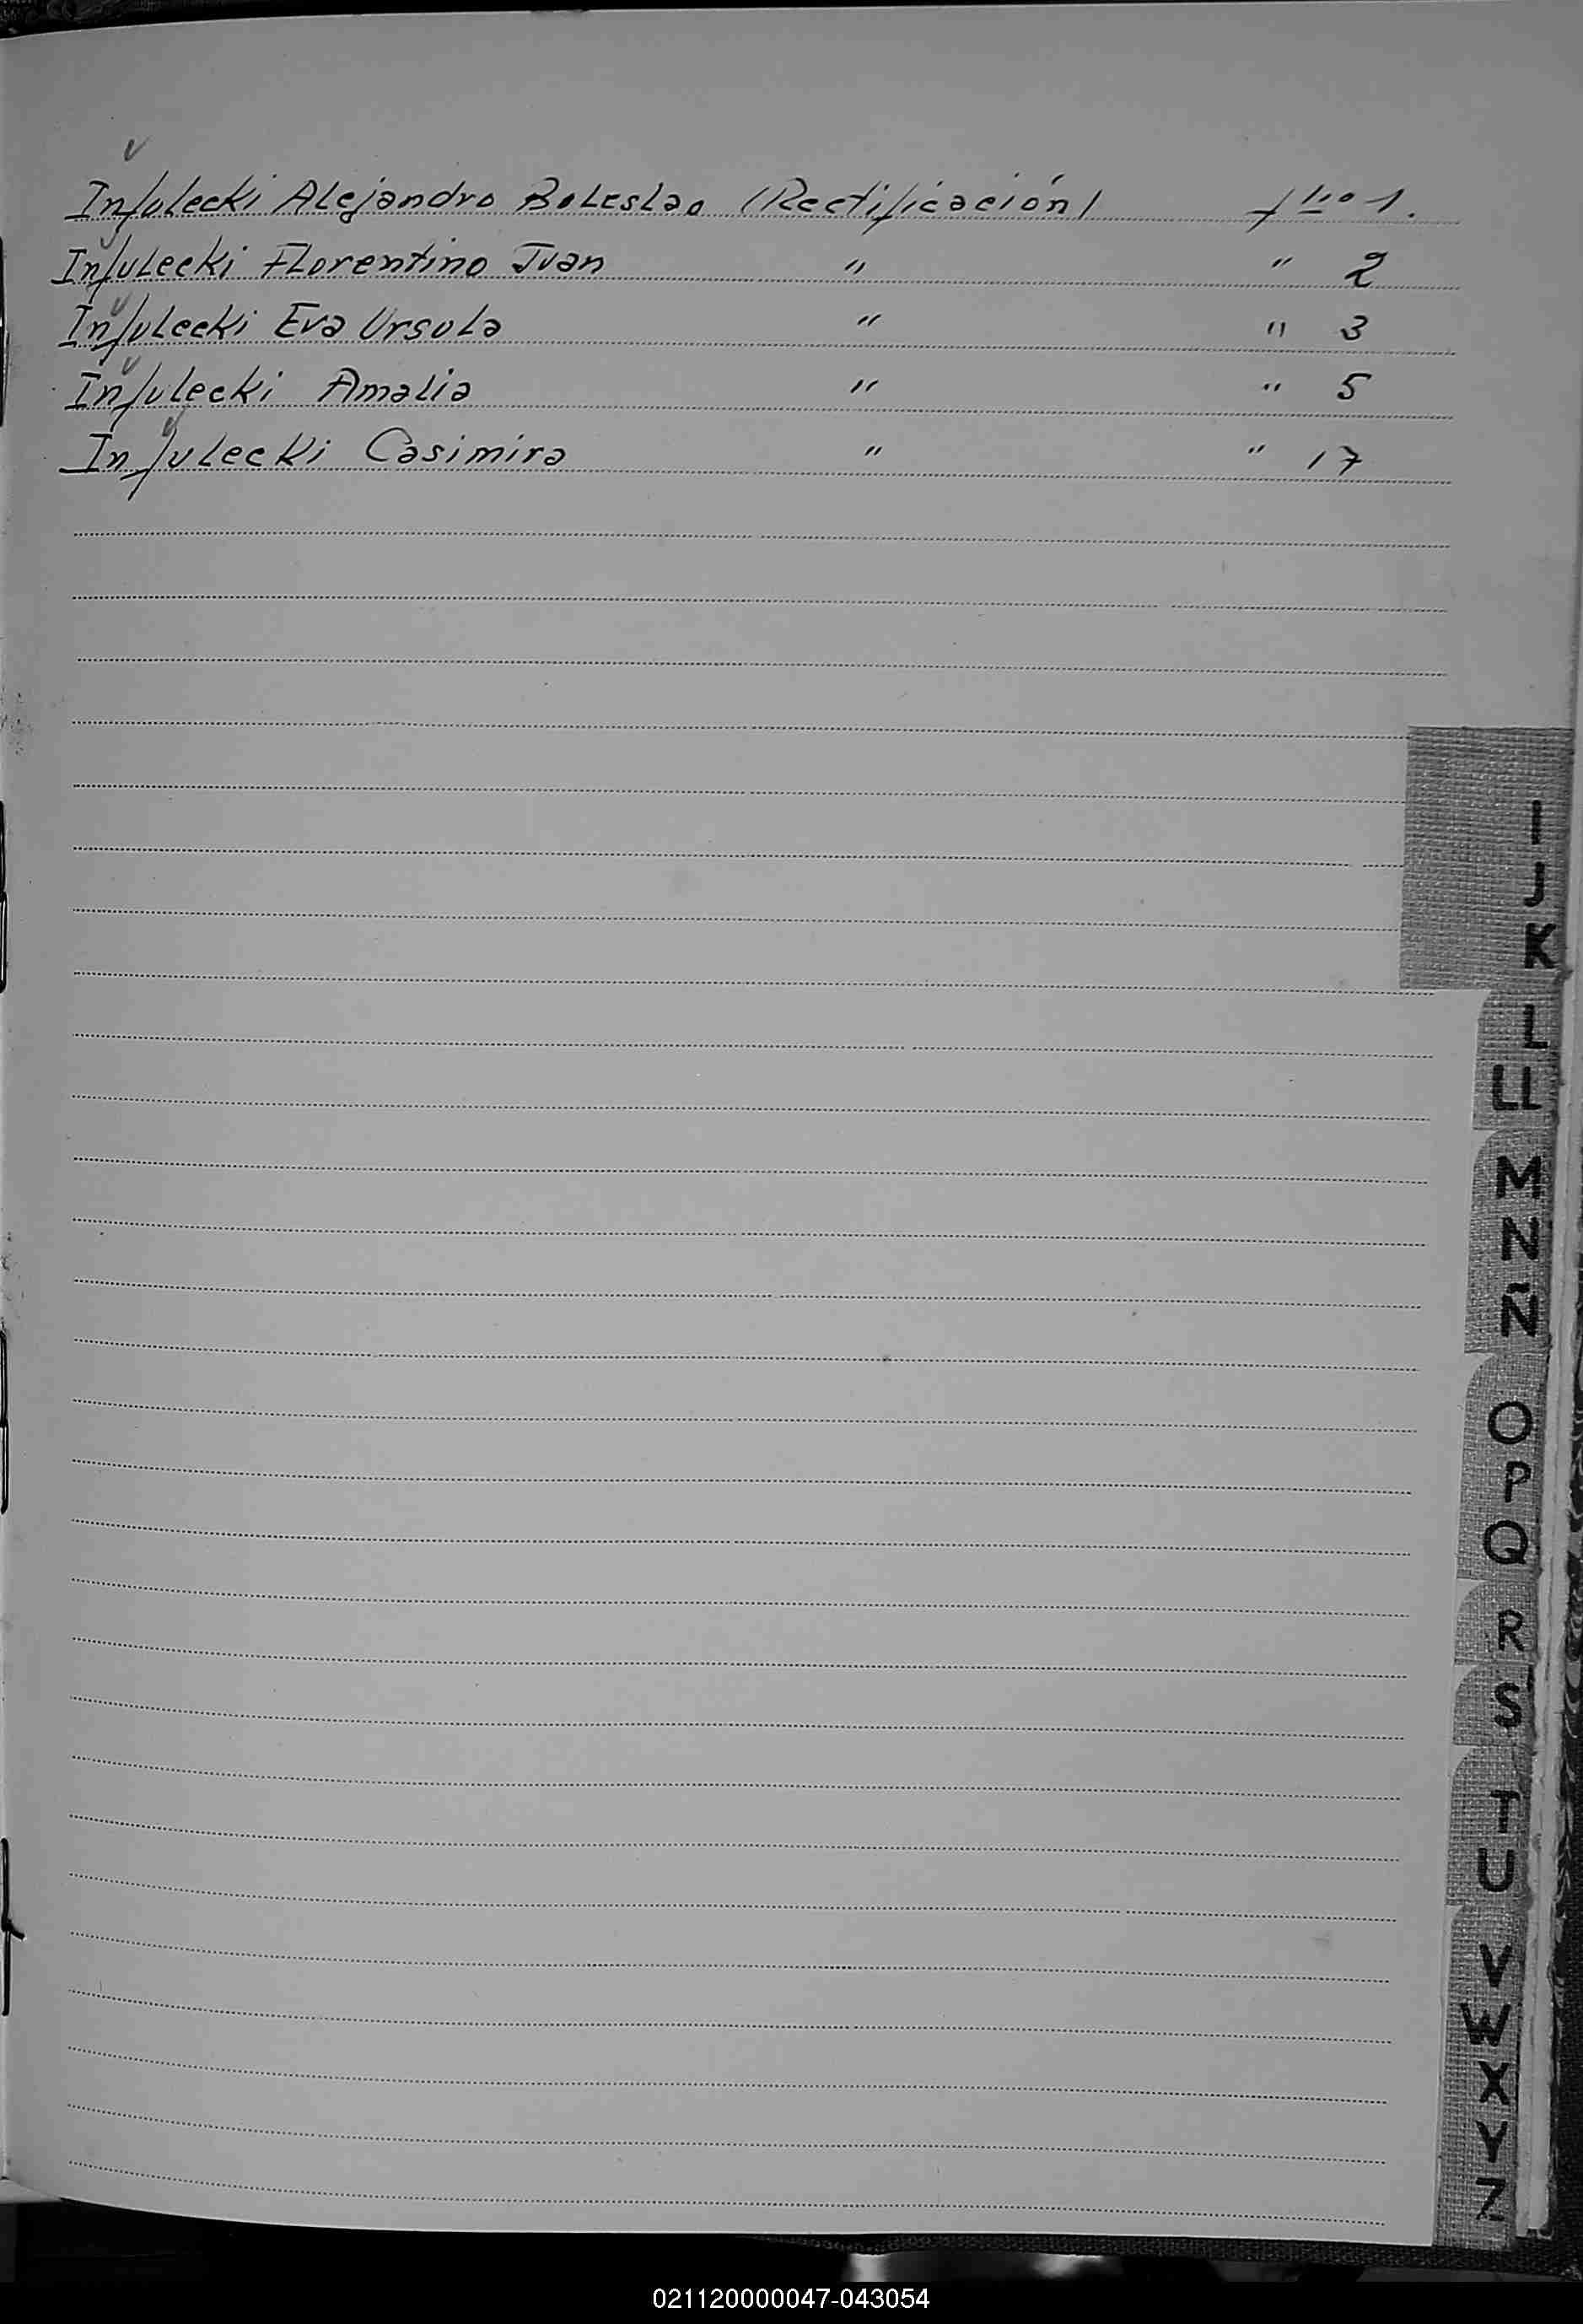 Infulecki Alejandro Boleslao (Rectificación) flio 1.
Infulecki Florentino Juan " " 2
Infulecki Eva Ursula " " 3
Infulecki Amalia " " 5
Infulecki Casimira " " 17
I
J
K
L
LL
M
N
Ñ
O
P
Q
R
S
T
U
V
W
X
Y
Z
021120000047-043054